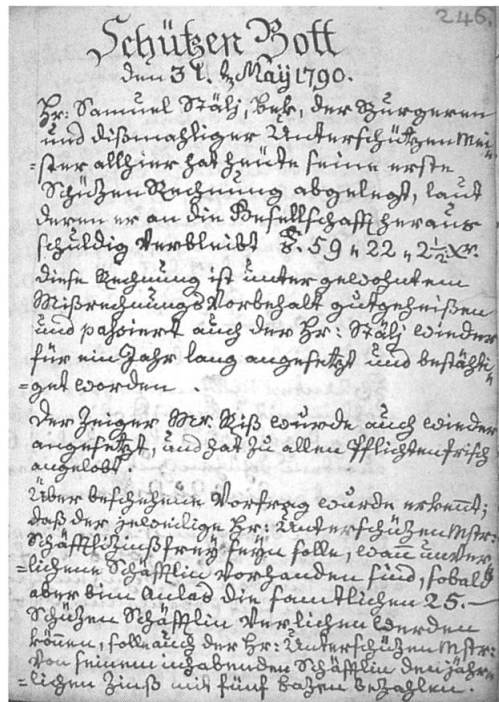 246.
Schützen Bott
den 31. t. May 1790.
Hr: Samuel Stälj, Bek, der Burgeren
und dißmahliger Unterschützen Mei=
=ster allhier hat heute seine erste
Schützen Rechnung abgelegt, laut
deren er an die Gesellschafft heraus
schuldig verbleibt 59 „ 22 „ 2½ xr.
diese Rechnung ist unter gewohntem
Mißrechnungs Vorbehalt gutgeheißen
und paßiert auch der Hr: Stälj wieder
für ein Jahr lang angesetzt und bestähti=
=get worden.
Der Zeiger Mr. Riß wurde auch wieder
angesetzt, und hat zu allen Pflichten frisch
angelobt.
Über beschehene Vorfrag wurde erkennt;
daß der jeweilige Hr: Unterschützen Mstr:
Schäfftli Zinßfrey seyn solle, wann unver=
=lichene Schäfftlin vorhanden sind, sobald
aber die samtlichen 25.
Schützen Schäfftlin verlichen werden
können, solle auch der Hr: Unterschützen Mstr:
von seinem inhabenden Schäfftlin den jähr=
=lichen Zinß mit fünf bazen bezahlen.